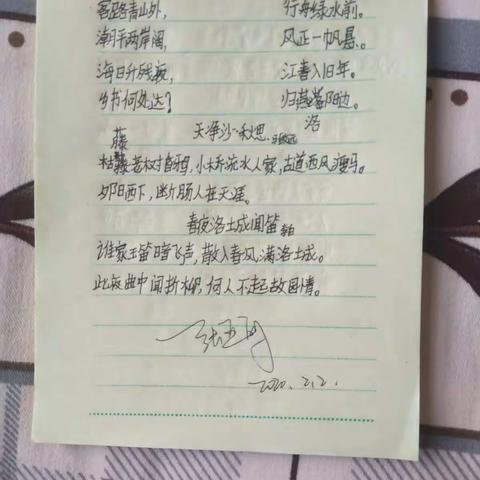 客路青山外, 行舟绿水前。
潮平两岸阔, 风正一帆悬。
海日升残夜, 江春入旧年。
乡书何处达? 归燕洛阳边。
天净沙·秋思 马致远
枯藤老树昏鸦,小桥流水人家,古道西风瘦马。
夕阳西下,断肠人在天涯。
春夜洛土成闻笛 李白
谁家玉笛暗飞声,散入春风满洛土成。
此夜曲中闻折柳,何人不起故园情。
2020.2.2.